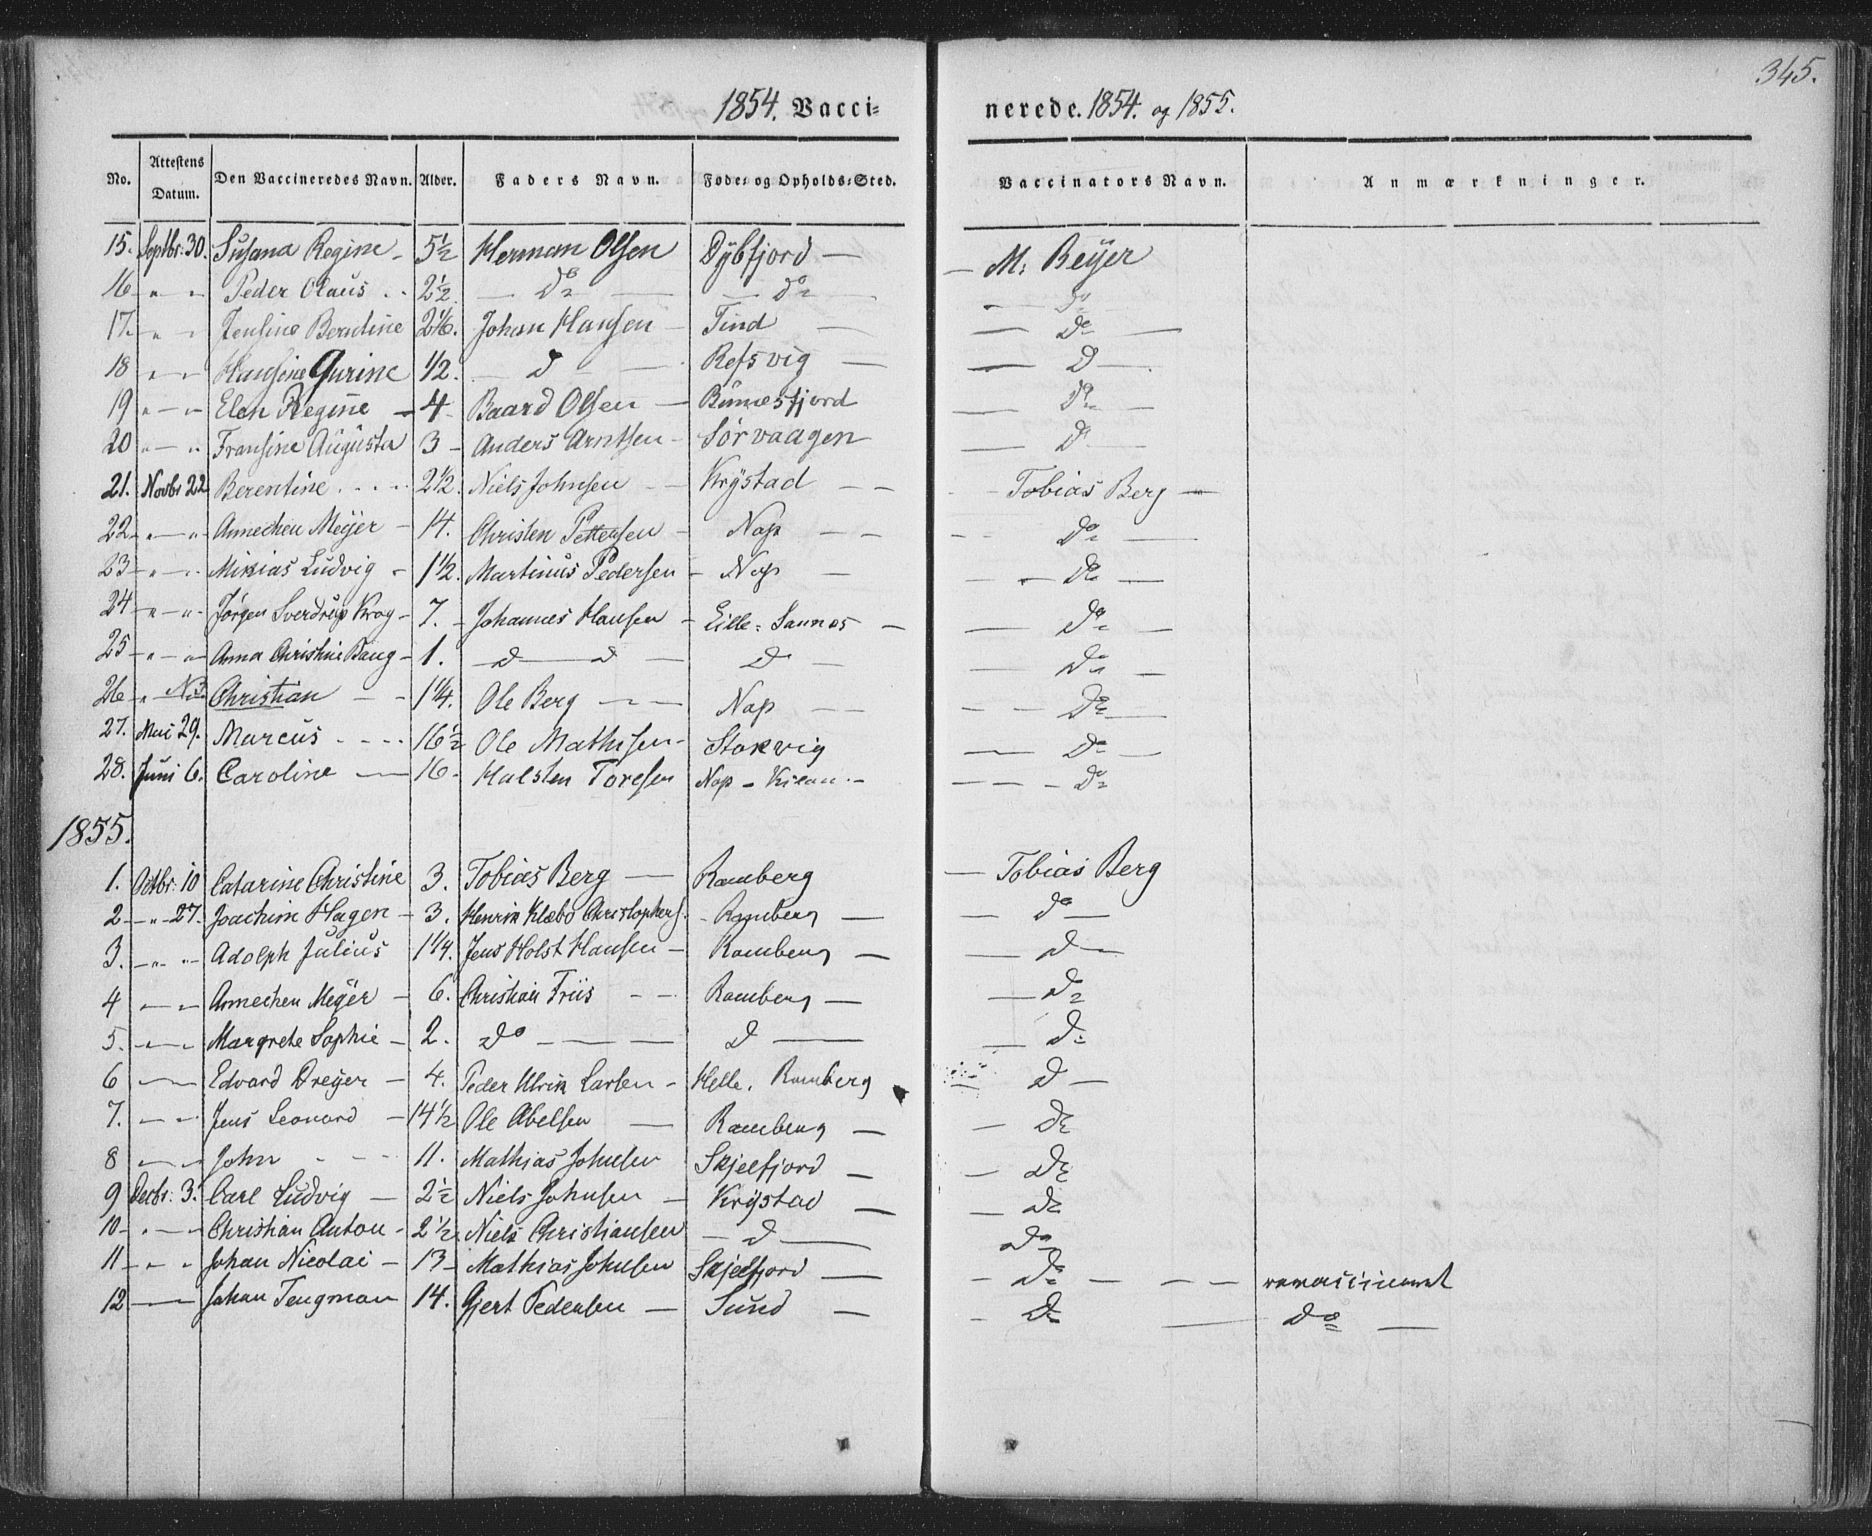 345.
1854. Vacci= nerede. 1854. og 1855.
No. Attestens Datum. Den Vaccineredes Navn. Alder. Faders Navn. Føde= og Opholds=Sted. Vaccinators Navn. Anmærkninger.
15. Septbr: 30. Susana Regine - 5½ Herman Olsen Dybfjord — — M: Beyer
16 " — " Peder Olaus . . 2½ — Do — — Do — — Do
17. " " Jensine Berntine 2 1/6. Johan Hansen — Tind — — Do —
18 " — " Hansine Gurine 1/2. — D — Refsvig — — D —
19 " — " Elen Regine — 4 Baard Olsen — Bunesfjord — Do —
20 " — " Fransine Augusta 3 - Anders Arntsen - Sørvaagen — D —
21. Novbr 22 Berentine . . . . 2½. Niels Johnsen — Krystad — — - - Tobias Berg —
22 " — " Annechen Meyer - 14. Christen Pettersen - Nap — — — Do —
23 " — " Mikias Ludvig - 1½. Martinus Pedersen - Nap — — Do —
24 " — " Jørgen Sverdrup Krog - 7. - Johannes Hansen - Lille= Sannes — — Do —
25 " — " Anna Christine Bang - 1. — D — D — D — — Do —
26 " — Christian — - 1¼. Ole Berg — — Nap — — — Do —
27. Mai 29. Marcus . . . . 16½ Ole Mathisen - Storvig — Do —
28. Juni 6. Caroline — 16 - Halsten Toresen Nap - — — - Do
1855.
1. Octbr: 10 Catarine Christine 3. Tobias Berg — Ramberg — Tobias Berg
2 — " — 27. Joachim Hagen - 3. Henrik Klæbo Christophers. - Ramberg — — Do —
3. — " — " Adolph Julius 1¼. Jens Holst Hansen — Ramberg — — D —
4 — " — Annechen Meyer - 6. Christian Friis — — Ramberg — — Do
5. — " — Margrete Sophie - 2. Do — — — D — — D:
6 — " — Edvard Dreyer - 4. Peder Ulrik Larsen - Helle. Ramberg — D —
7. — " Jens Leonard — 14½ Ole Abelsen — Ramberg — — Do
8 — " — John - - - 11. Mathias Johnsen Skjelfjord — — Do
9 Decbr: 3. Carl Ludvig — 2½ Niels Johnsen — Krystad — — Do
10 - " — " Christian Anton - 2½ Niels Christiansen — D — Do
11 — " " Johan Nicolai - 13 - Mathias Johnsen Skjelfjord — - Do - — — revaccineret
12 — Johan Tengman 14. Gjert Pedersen — Sund — - Do — Do —